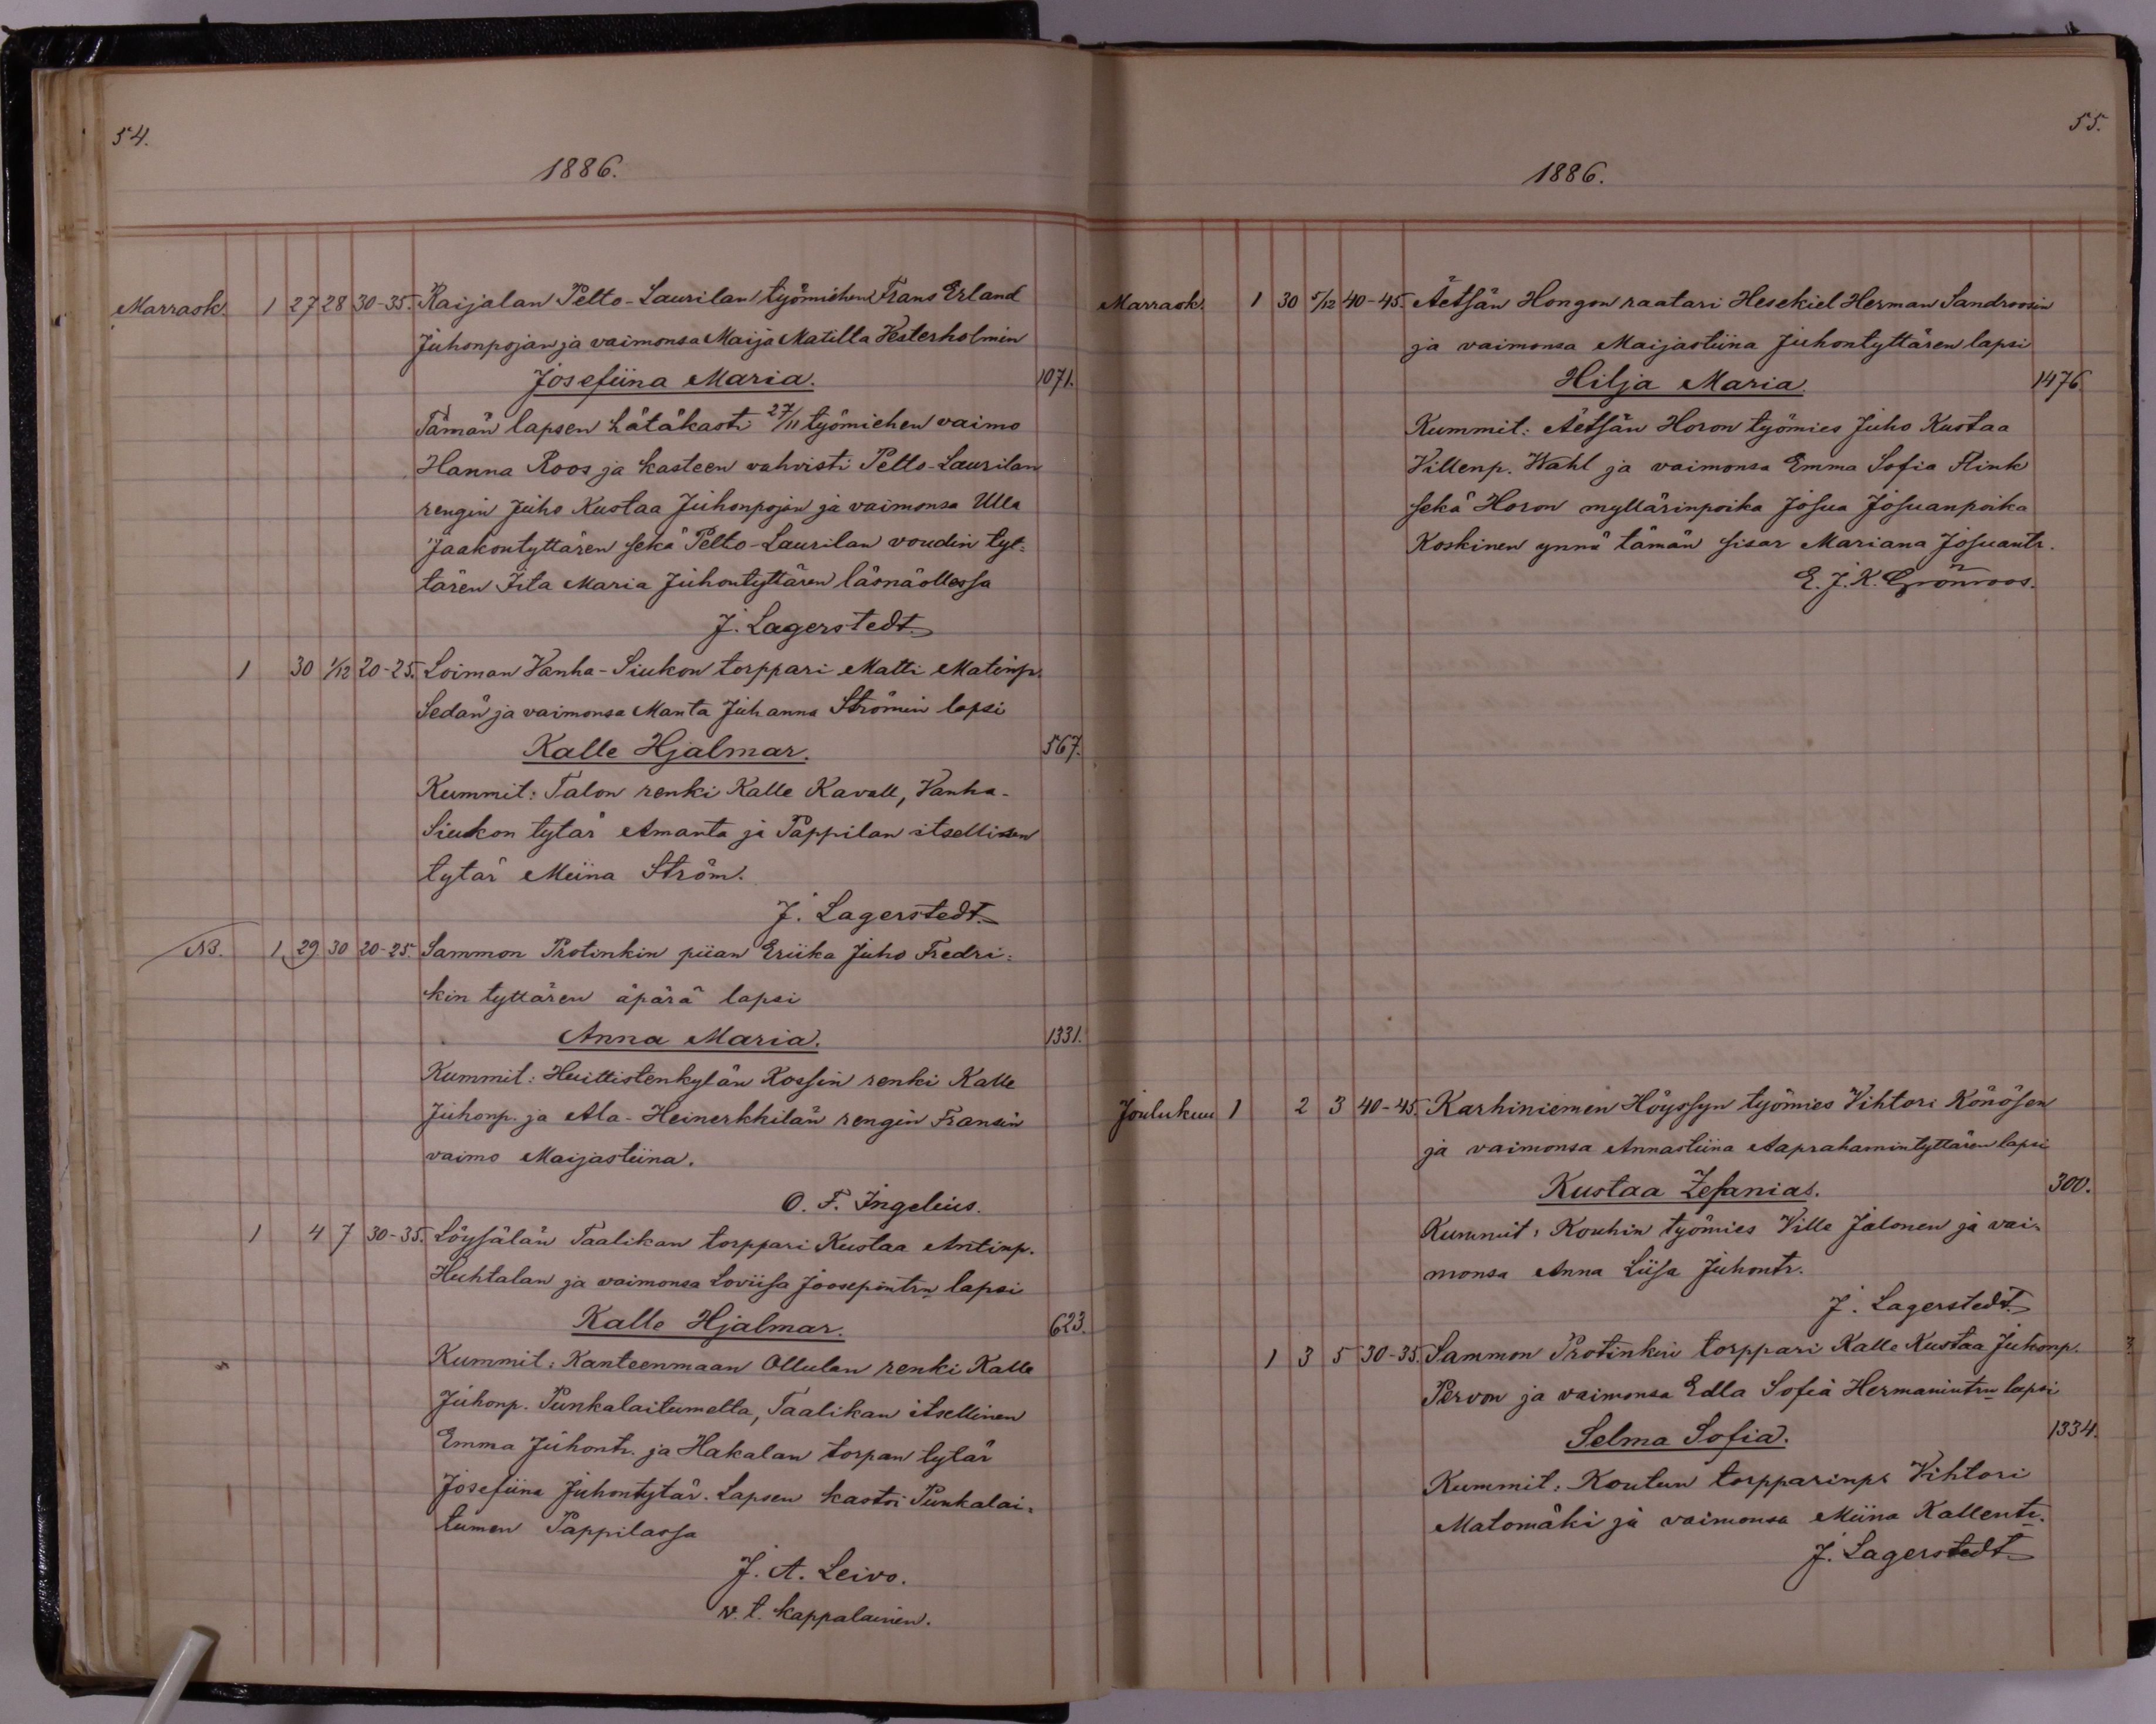 54.
1886.
Marrask. 1 27 28 30-35. Raijalan Pelto-Laurilan työmiehen Frans Erland
Juhonpojan ja vaimonsa Maija Matilta Vesterholmin
Josefiina Maria. 1071.
Tämän lapsen hätäkasti 27/11 työmiehen vaimo
Hanna Roos ja kasteen vahvisti Pelto-Laurilan
rengin Juho Kustaa Juhonpojan ja vaimonsa Ulla
Jaakontyttären sekä Pelto-Laurilan voudin tyt-
tären Iita Maria Juhontyttären läsnäollessa
J. Lagerstedt.
1 30 1/12 20-25. Loiman Vanha-Siukon torppari Matti Matinp.
Sedan ja vaimonsa Manta Juhanna Strömin lapsi
Kalle Hjalmar. 567.
Kummit: Talon renki Kalle Kavall, Vanha-
Siukon tytär Amanta ja Pappilan itsellisen
tytär Miina Ström.
J. Lagerstedt.
NB. 1 29 30 20-25. Sammon Protinkin piian Eriika Juho Fredri-
kin tyttären äpärä lapsi
Anna Maria. 1331.
Kummit: Huittistenkylän Kossin renki Kalle
Juhonp. ja Ala-Heinerkkilän rengin Fransin
vaimo Maijastiina.
O. F. Ingelius.
1 4 7 30-35. Löysälän Taalikan torppari Kustaa Antinp.
Huhtalan ja vaimonsa Loviisa Joosepintrn lapsi
Kalle Hjalmar. 623.
Kummit: Kanteenmaan Ollulan renki Kalle
Juhonp. Punkalaitumelta, Taalikan itsellinen
Emma Juhontr. ja Hakalan torpan tytär
Josefiina Juhontytär. Lapsen kastoi Punkalai-
tumen Pappilassa
J. A. Leivo.
v. t. kappalainen.
55.
1886.
Marrask. 1 30 5/12 40-45. Äetsän Hongon raatari Hesekiel Herman Sandroosin
ja vaimonsa Maijastiina Juhontyttären lapsi
Hilja Maria. 1476
Kummit: Äetsän Horon työmies Juho Kustaa
Villenp. Wahl ja vaimonsa Emma Sofia Flink
sekä Horon myllärinpoika Josua Josuanpoika
Koskinen ynnä tämän sisar Mariana Josuantr.
E. J. K. Grönroos.
Joulukuu 1 2 3 40-45. Karhiniemen Höyssyn työmies Vihtori Könösen
ja vaimonsa Annastiina Aaprahamintyttären lapsi
Kustaa Zefanias. 300.
Kummit: Kouhin työmies Ville Jalonen ja vai-
monsa Anna Liisa Juhontr.
J. Lagerstedt.
1 3 5 30-35. Sammon Protinkin torppari Kalle Kustaa Juhonp.
Pervon ja vaimonsa Edla Sofia Hermanintrn lapsi
Selma Sofia. 1334.
Kummit: Koutun torpparinp. Vihtori
Matomäki ja vaimonsa Miina Kallentr.
J. Lagerstedt.